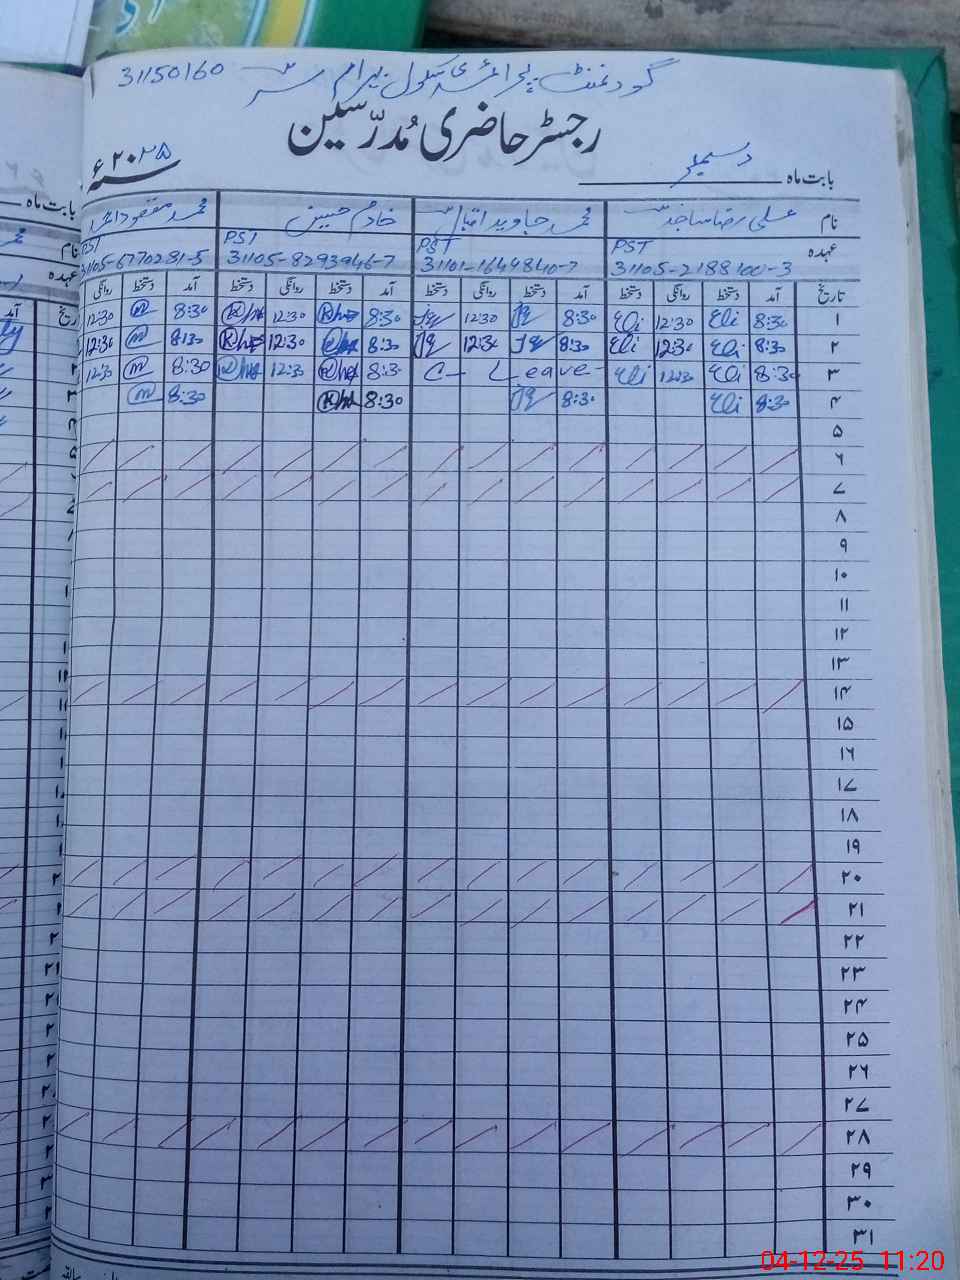 گورنمنٹ پرائمری سکول بہرام سر 31150160
رجسٹر حاضری مُدرّسین
بابت ماہ دسمبر سنہ ۲۰۲۵ء
نام علی رضا ساجد محمد جاوید اقبال خادم حسین محمد مقصود احمد
عہدہ PST PST PST PST
31105-2188100-3 31101-1644840-7 31105-8293946-7 31105-6770281-5
تاریخ آمد دستخط روانگی دستخط آمد دستخط روانگی دستخط آمد دستخط روانگی دستخط آمد دستخط روانگی
۱ 8:30 Eli 12:30 Eli 8:30 12:30 8:30 12:30 8:30 12:30
۲ 8:30 Eli 12:30 Eli 8:30 12:30 8:30 12:30 8:30 12:30
۳ 8:30 Eli 12:30 Eli C- Leave- 8:30 12:30 8:30 12:30
۴ 8:30 Eli 8:30 8:30 8:30
۵
۶
۷
۸
۹
۱۰
۱۱
۱۲
۱۳
۱۴
۱۵
۱۶
۱۷
۱۸
۱۹
۲۰
۲۱
۲۲
۲۳
۲۴
۲۵
۲۶
۲۷
۲۸
۲۹
۳۰
۳۱
بابت ماہ
نام
عہدہ
04-12-25 11:20